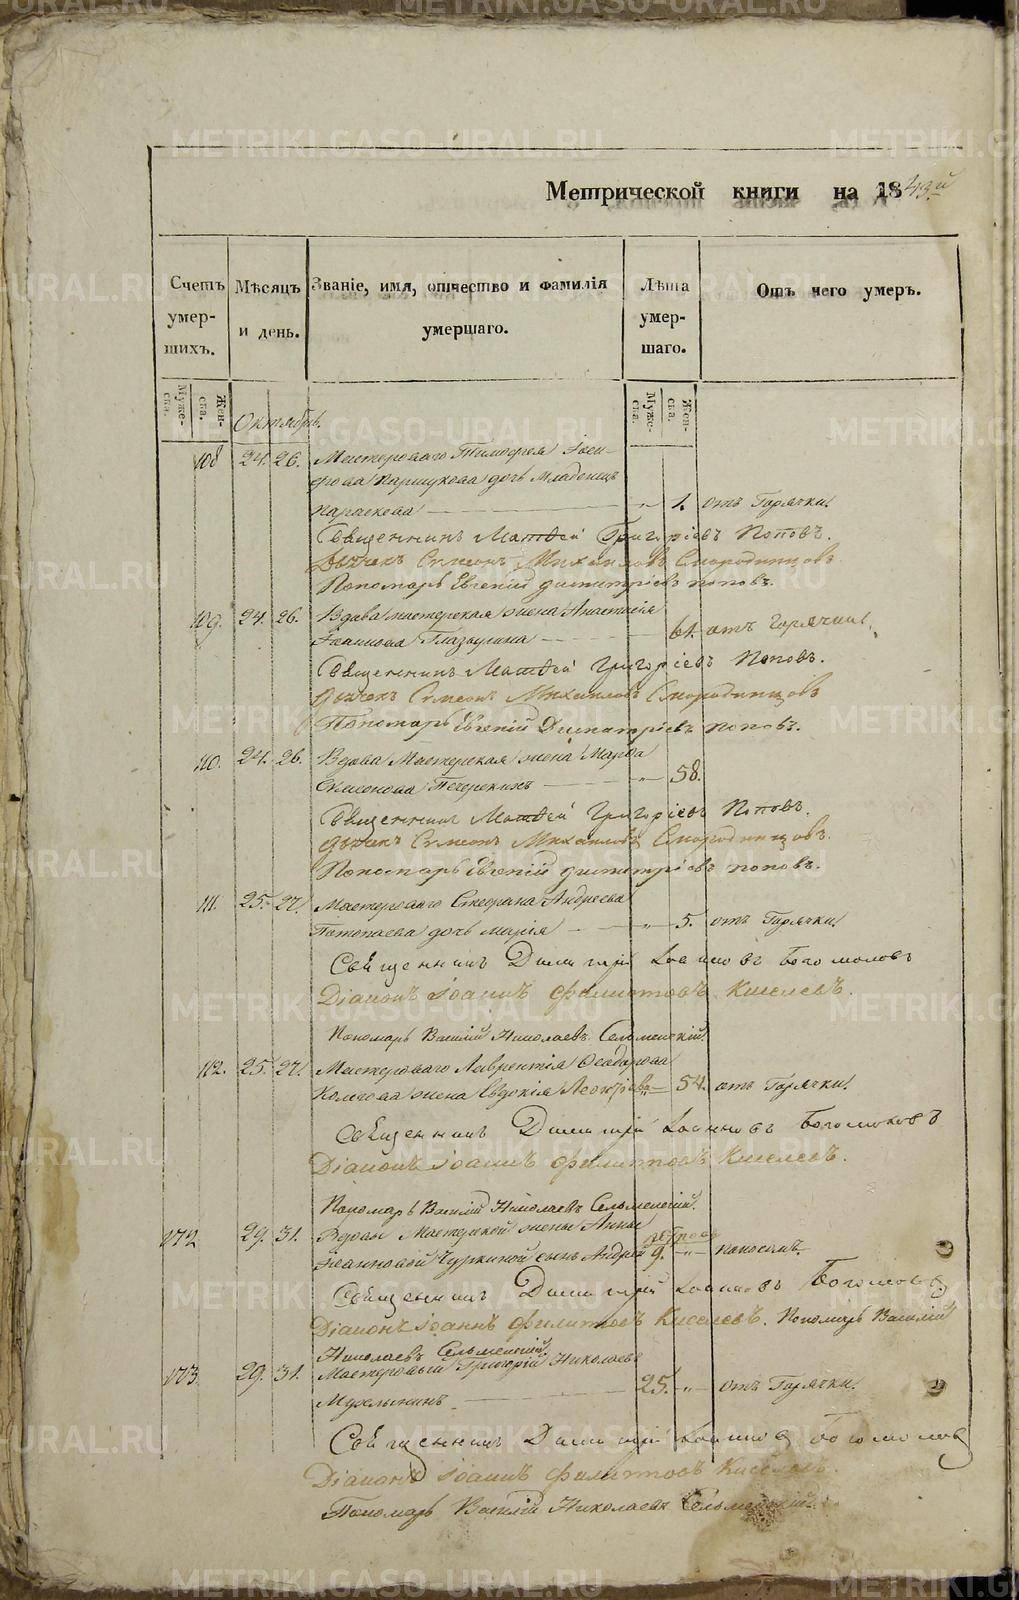 Метрической книги на 1843й
Счетъ умер-шихъ. Мѣсяцъ и день. Званіе, имя, отчество и фамилія умершаго. Лѣта умер-шаго. Отъ чего умеръ.
Муже-ска. Жен-ска. Муже-ска. Жен-ска.
Октябрь.
108 24. 26. Мастероваго Тимофея Іоси-
фова Паршукова дочь Младенецъ
Параскева — „ — 1. отъ Горячки.
Священникъ Матѳей Григоріевъ Поповъ.
Дьячекъ Симеонъ Михаиловъ Смородинцовъ
Пономарь Евгеній Димитріевъ Поповъ.
109. 24. 26. Вдова мастерская жена Анастасія
Іоаннова Глазырина — 61. отъ Горячки.
Священникъ Матѳей Григоріевъ Поповъ.
Дьячекъ Симеонъ Михаиловъ Смородинцовъ
Пономарь Евгеній Димитріевъ Поповъ.
110. 24. 26. Вдова Мастерская жена Марѳа
Симонова Печеркинъ — „ — 58.
Священникъ Матѳей Григоріевъ Поповъ.
Дьячекъ Симеонъ Михаиловъ Смородинцовъ.
Пономарь Евгеній Димитріевъ Поповъ.
111. 25. 27. Мастероваго Стефана Андреева
Потопаева дочь Марія — „ — 5. отъ Горячки.
Священникъ Димитрій Іоанновъ Богомоловъ
Діаконъ Іоаннъ Филиповъ Киселевъ.
Пономарь Василій Николаевъ Сельменскій.
112. 25. 27. Мастероваго Лаврентія Ѳеодорова
жена Евдокія — 54. отъ Горячки.
Священникъ Димитрій Іоанновъ Богомоловъ
Діаконъ Іоаннъ Филиповъ Киселевъ.
Пономарь Василій Николаевъ Сельменскій.
172 29. 31. Вдовы Мастерской жены Анны
Іоанновой Чуркиной сынъ Андрей 9. — „ — поносомъ.
Священникъ Димитрій Іоанновъ Богомоловъ
Діаконъ Іоаннъ Филиповъ Киселевъ. Пономарь Василій
Николаевъ Сельменскій.
173. 29. 31. Мастеровый Григорій Николаевъ
— 25. „ — отъ Горячки.
Священникъ Димитрій Іоанновъ Богомоловъ
Діаконъ Іоаннъ Филиповъ Киселевъ.
Пономарь Василій Николаевъ Сельменскій.
METRIKI.GASO-URAL.RU